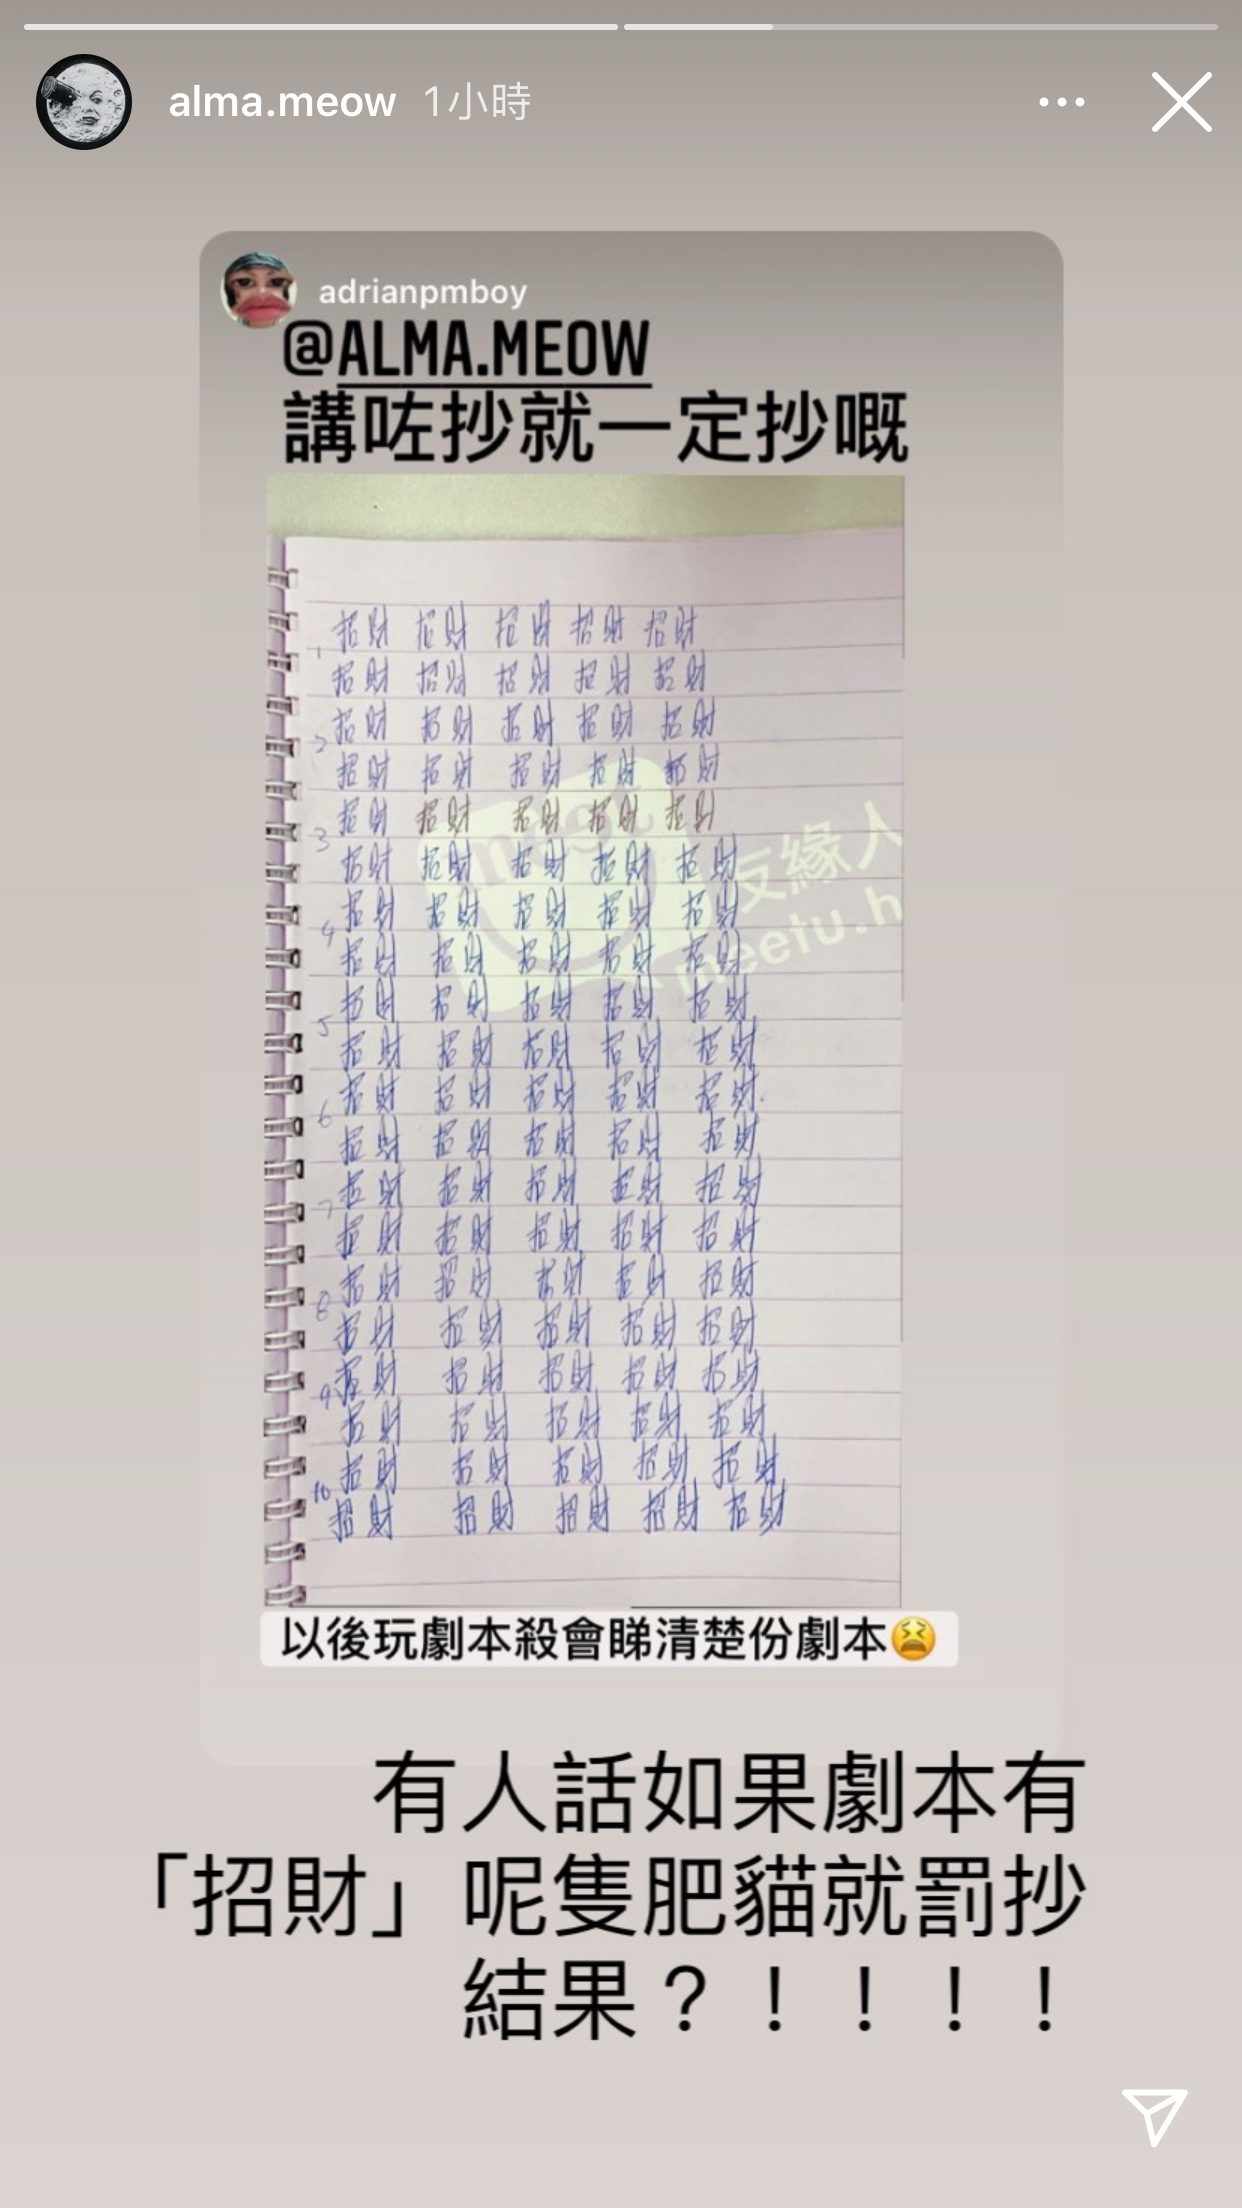 alma.meow 1小時
adrianpmboy
@ALMA.MEOW
講咗抄就一定抄嘅
招財 招財 招財 招財 招財
1
招財 招財 招財 招財 招財
招財 招財 招財 招財 招財
2
招財 招財 招財 招財 招財
招財 招財 招財 招財 招財
3
招財 招財 招財 招財 招財
招財 招財 招財 招財 招財
4
招財 招財 招財 招財 招財
招財 招財 招財 招財 招財
5
招財 招財 招財 招財 招財
招財 招財 招財 招財 招財
6
招財 招財 招財 招財 招財
招財 招財 招財 招財 招財
7
招財 招財 招財 招財 招財
招財 招財 招財 招財 招財
8
招財 招財 招財 招財 招財
招財 招財 招財 招財 招財
9
招財 招財 招財 招財 招財
招財 招財 招財 招財 招財
10
招財 招財 招財 招財 招財
緣人
meetu.h
以後玩劇本殺會睇清楚份劇本😫
有人話如果劇本有
「招財」呢隻肥貓就罰抄
結果？！！！！